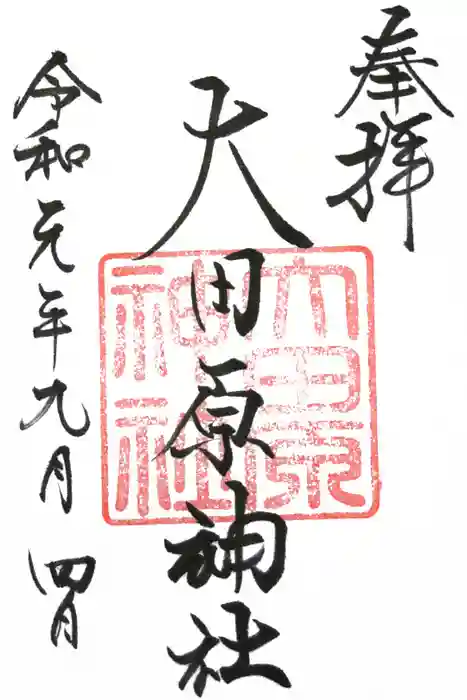 奉拝
大田原神社
令和元年九月四日
大田原
神社